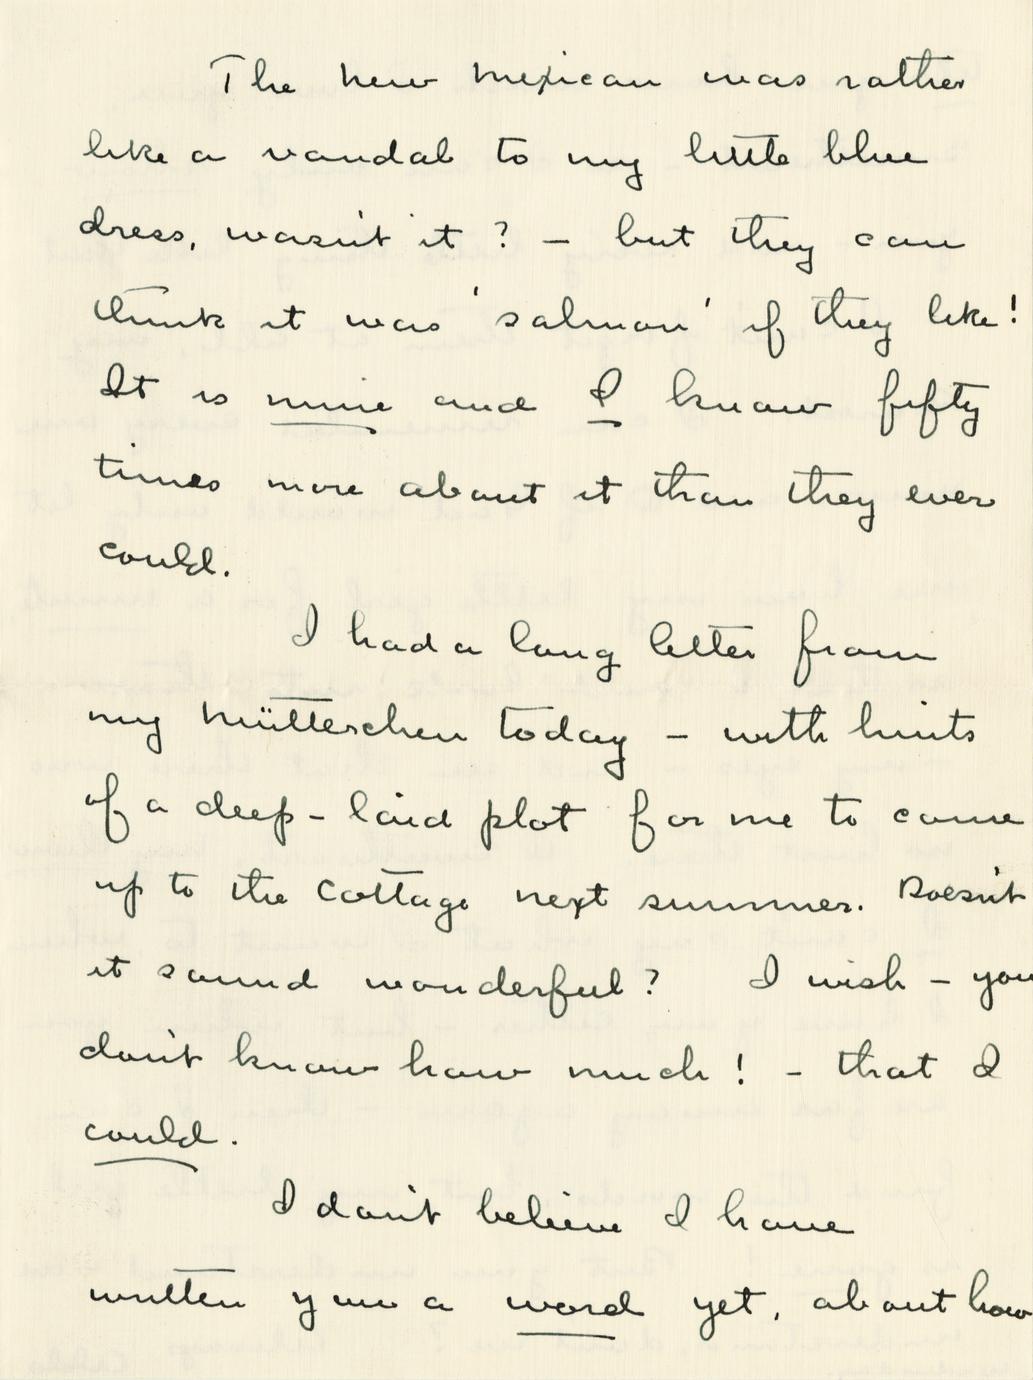 The New Mexican was rather
like a vandal to my little blue
dress, wasn't it? – but they can
think it was 'salmon' if they like!
It is mine and I know fifty
times more about it than they ever
could.
I had a long letter from
my Mütterchen today – with hints
of a deep-laid plot for me to come
up to the Cottage next summer. Doesn't
it sound wonderful? I wish – you
don't know how much! – that I
could.
I don't believe I have
written you a word yet, about how